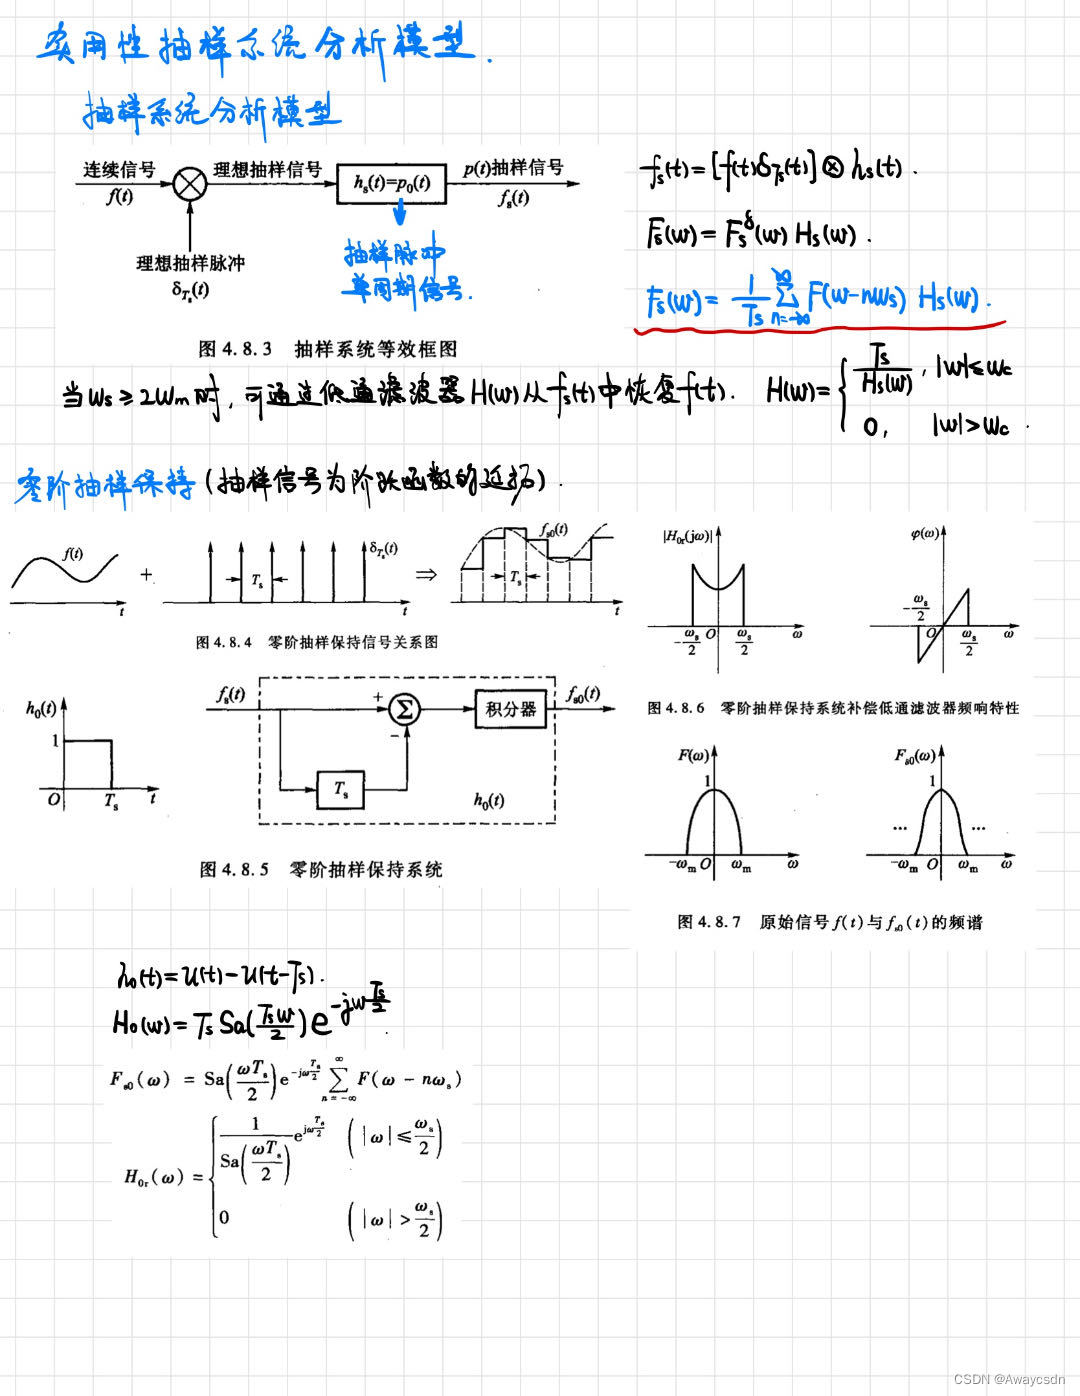 实用性抽样系统分析模型.
抽样系统分析模型
连续信号 f(t)
理想抽样信号
hs(t)=p0(t)
p(t)抽样信号 fs(t)
理想抽样脉冲
δTs(t)
抽样脉冲
单周期信号.
图 4.8.3 抽样系统等效框图
fs(t)=[f(t)δTs(t)]⊗hs(t).
Fs(w)=Fsδ(w) Hs(w).
Fs(w)= 1/Ts ∑n=-∞ ∞ F(w-nws) Hs(w).
当 ws≥2wm时, 可通过低通滤波器H(w)从fs(t)中恢复f(t). H(w)={ Ts/Hs(w), |w|≤wc
0, |w|>wc.
零阶抽样保持 (抽样信号为阶跃函数的延拓).
f(t) t + Ts δTs(t) t ⇒ fs0(t) Ts t
图 4.8.4 零阶抽样保持信号关系图
|H0r(jω)| -ωs/2 O ωs/2 ω
φ(ω) -ωs/2 O ωs/2 ω
图 4.8.6 零阶抽样保持系统补偿低通滤波器频响特性
h0(t) 1 O Ts t
fs(t) + Σ - 积分器 fs0(t)
Ts h0(t)
图 4.8.5 零阶抽样保持系统
F(ω) 1 -ωm O ωm ω
Fs0(ω) 1 … … -ωm O ωm ω
图 4.8.7 原始信号 f(t)与 fs0(t)的频谱
h0(t)=u(t)-u(t-Ts).
H0(w)=Ts Sa(Tsw/2)e^-jwTs/2.
Fs0(ω) = Sa(ωTs/2)e^-jωTs/2 ∑n=-∞ ∞ F(ω - nωs)
H0r(ω) = { 1/Sa(ωTs/2) e^jωTs/2 (|ω|≤ωs/2)
0 (|ω|>ωs/2)
CSDN @Awaycsdn